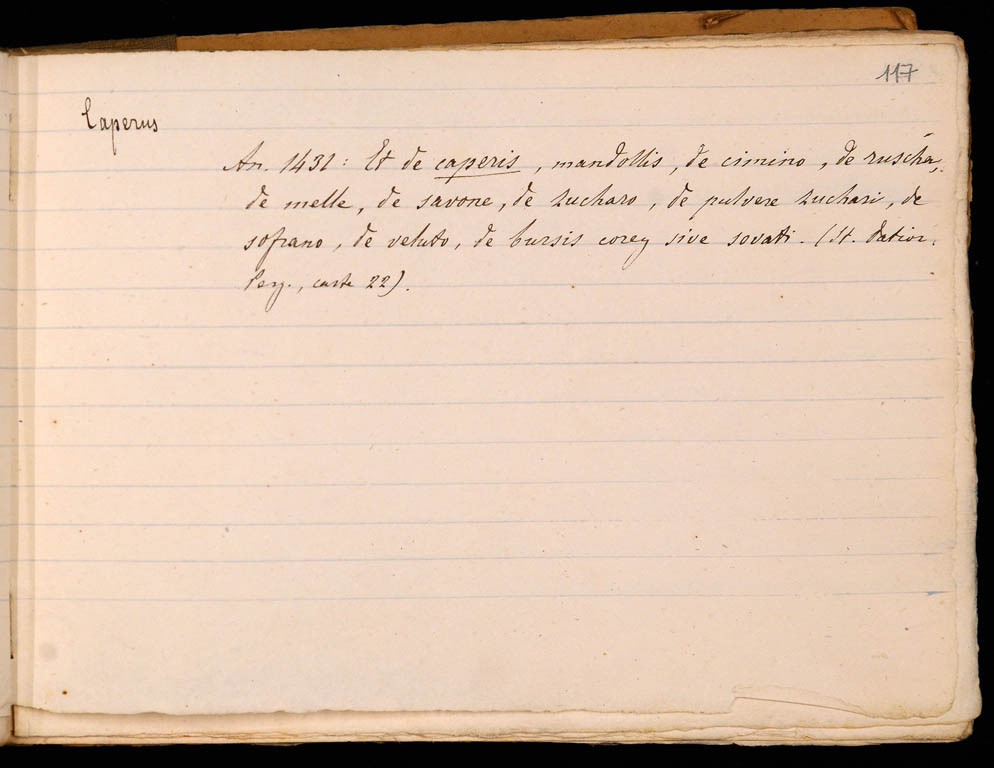 117
Caperus
An. 1431: Et de caperis, mandollis, de cimino, de ruscha,
de melle, de savone, de zucharo, de pulvere zuchari, de
sofrano, de veluto, de bursis corey sive sovatti. (St. Datior.
Perg., carte 22).